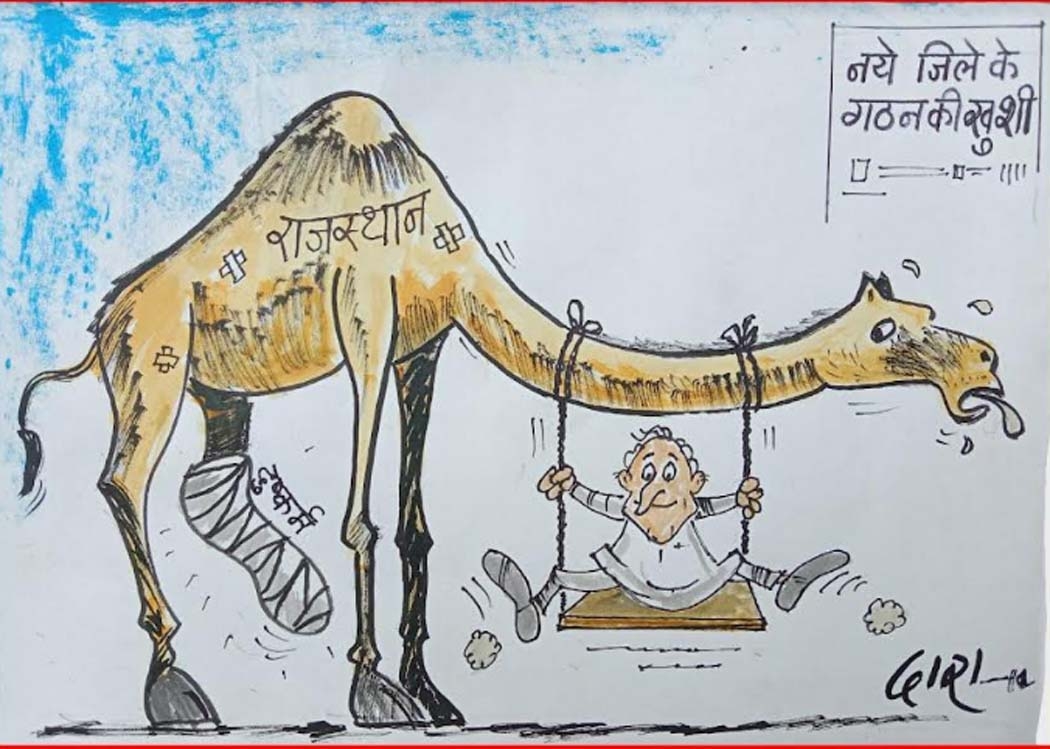 नये जिले के
गठन की खुशी
राजस्थान
दुष्कर्म
दारा